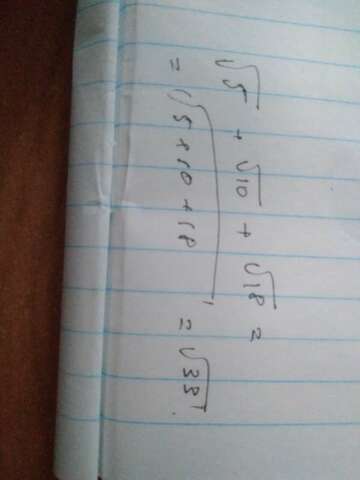 √5 + √10 + √18 =
= √5+10+18 = √33